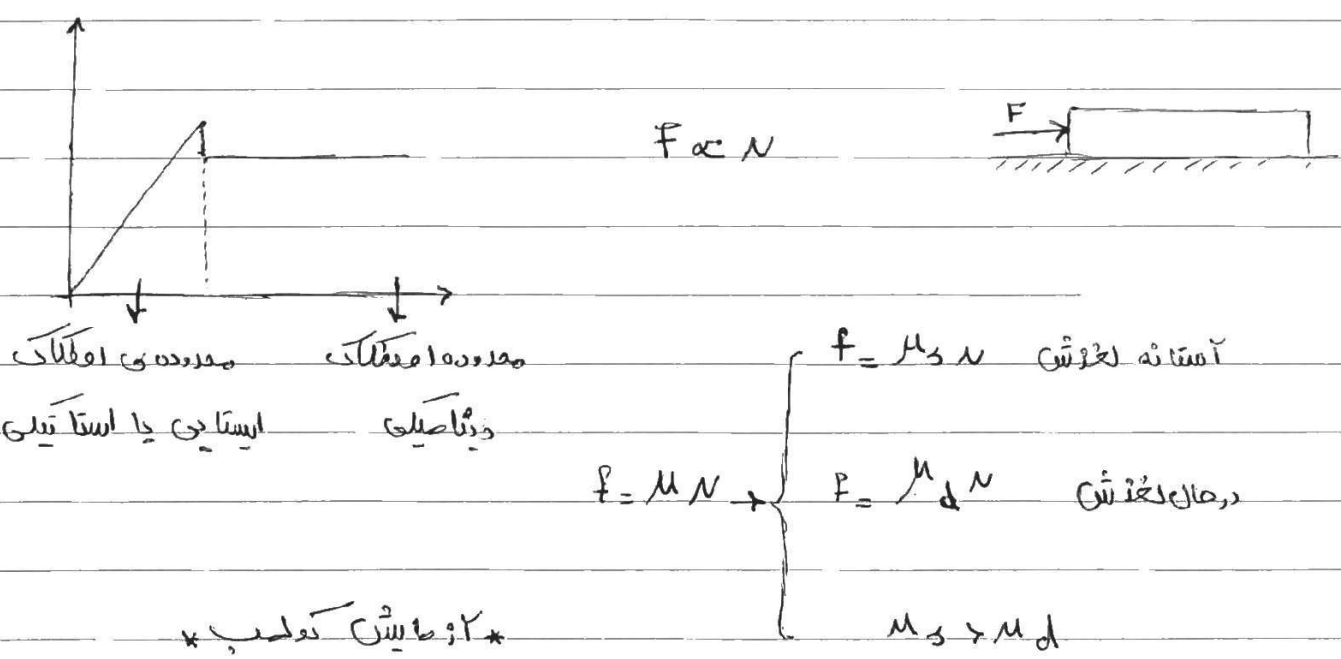 F
F ∝ N
محدوده‌ی اصطکاک ایستایی یا استاتیکی
محدوده اصطکاک دینامیکی
f = μs N آستانه لغزش
f = μN → F = μd N درحال لغزش
μs > μd
* آزمایش کولمب *